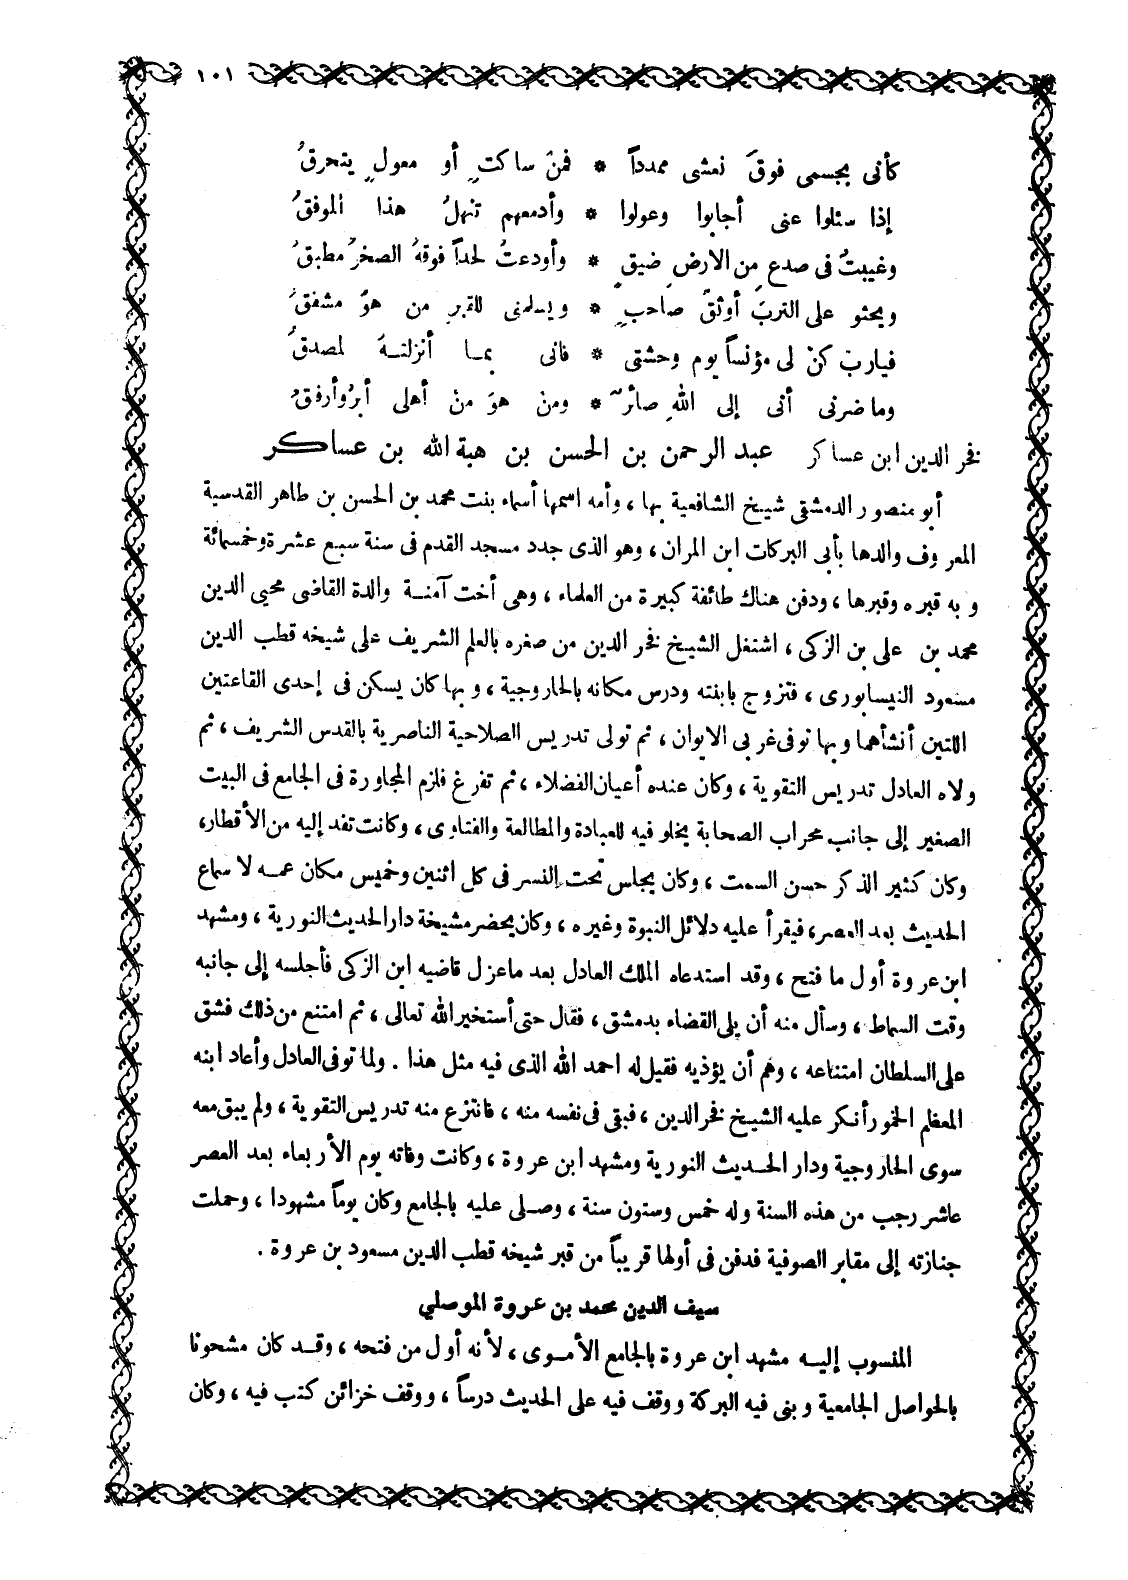 ١٠١
كأنى بجسمى فوقَ نعشى ممدداً * فمنْ ساكتٍ أو معولٍ يتحرقُ
إذا سئلوا عنى أجابوا وعولوا * وأدمعهم تنهلُ هذا الموفقُ
وغيبتُ فى صدعٍ من الارضِ ضيقٍ * وأودعتُ لحداً فوقهُ الصخرُ مطبقُ
ويحثو على التربَ أوثقُ صاحبٍ * ويسلمنى للقبرِ من هوَ مشفقُ
فيارب كنْ لى مؤنساً يوم وحشتى * فانى بما أنزلتهُ لمصدقُ
وماضرنى أنى إلى اللهِ صائرٌ * ومنْ هوَ منْ أهلى أبرُ وأرفقُ
فخر الدين ابن عساكر عبد الرحمن بن الحسن بن هبة الله بن عساكر
أبو منصور الدمشقى شيخ الشافعية بها ، وأمه اسمها أسماء بنت محمد بن الحسن بن طاهر القدسية
المعروف والدها بأبى البركات ابن المران ، وهو الذى جدد مسجد القدم فى سنة سبع عشرة وخمسمائة
وبه قبره وقبرها ، ودفن هناك طائفة كبيرة من العلماء ، وهى أخت آمنة والدة القاضى محيى الدين
محمد بن على بن الزكى ، اشتغل الشيخ فخر الدين من صغره بالعلم الشريف على شيخه قطب الدين
مسعود النيسابورى ، فتزوج بابنته ودرس مكانه بالجاروجية ، وبها كان يسكن فى إحدى القاعتين
اللتين أنشأهما وبها توفى غربى الايوان ، ثم تولى تدريس الصلاحية الناصرية بالقدس الشريف ، ثم
ولاه العادل تدريس التقوية ، وكان عنده أعيان الفضلاء ، ثم تفرغ فلزم المجاورة فى الجامع فى البيت
الصغير إلى جانب محراب الصحابة يخلو فيه للعبادة والمطالعة والفتاوى ، وكانت تفد إليه من الأقطار ،
وكان كثير الذكر حسن السمت ، وكان يجلس تحت النسر فى كل اثنين وخميس مكان عمه لاسماع
الحديث بعد العصر ، فيقرأ عليه دلائل النبوة وغيره ، وكان يحضر مشيخة دار الحديث النورية ، ومشهد
ابن عروة أول ما فتح ، وقد استدعاه الملك العادل بعد ماعزل قاضيه ابن الزكى فأجلسه إلى جانبه
وقت السماط ، وسأل منه أن يلى القضاء بدمشق ، فقال حتى أستخير الله تعالى ، ثم امتنع من ذلك فشق
على السلطان امتناعه ، وهم أن يؤذيه فقيل له احمد الله الذى فيه مثل هذا . ولما توفى العادل وأعاد ابنه
المعظم الخمور أنكر عليه الشيخ فخر الدين ، فبقى فى نفسه منه ، فانتزع منه تدريس التقوية ، ولم يبق معه
سوى الجاروجية ودار الحديث النورية ومشهد ابن عروة ، وكانت وفاته يوم الأربعاء بعد العصر
عاشر رجب من هذه السنة وله خمس وستون سنة ، وصلى عليه بالجامع وكان يوماً مشهودا ، وحملت
جنازته إلى مقابر الصوفية فدفن فى أولها قريباً من قبر شيخه قطب الدين مسعود بن عروة .
سيف الدين محمد بن عروة الموصلي
المنسوب إليه مشهد ابن عروة بالجامع الأموى ، لأنه أول من فتحه ، وقد كان مشحونا
بالحواصل الجامعية وبنى فيه البركة ووقف فيه على الحديث درساً ، ووقف خزائن كتب فيه ، وكان